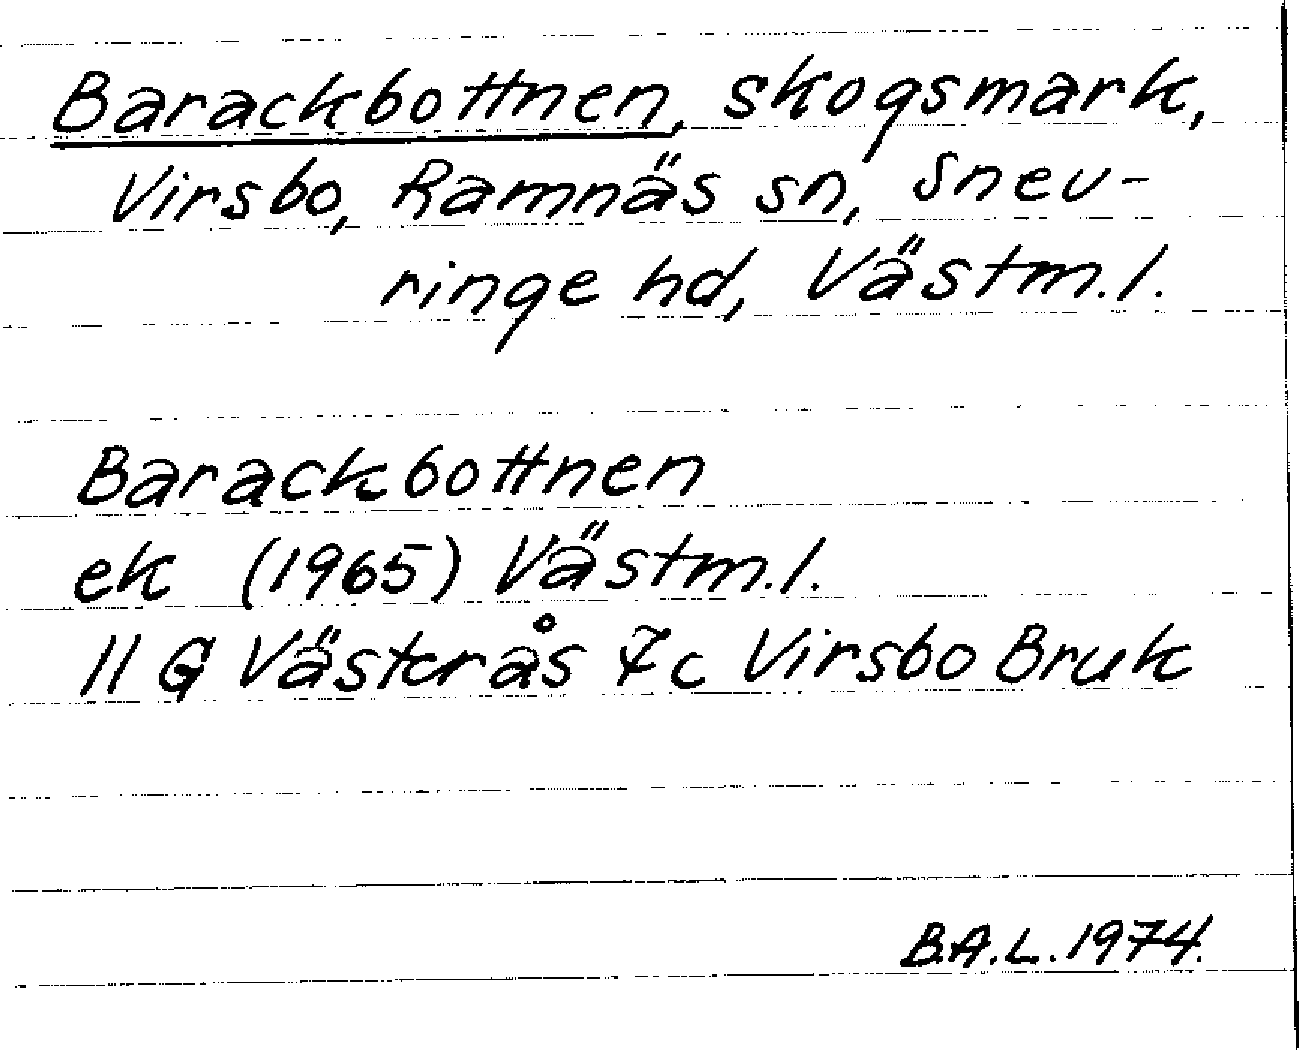 Barackbottnen, skogsmark,
Virsbo, Ramnäs sn, Snev-
ringe hd, Västm.l.
Barackbottnen
ek (1965) Västm.l.
11 G Västerås 7c Virsbo Bruk
B.A.L. 1974.